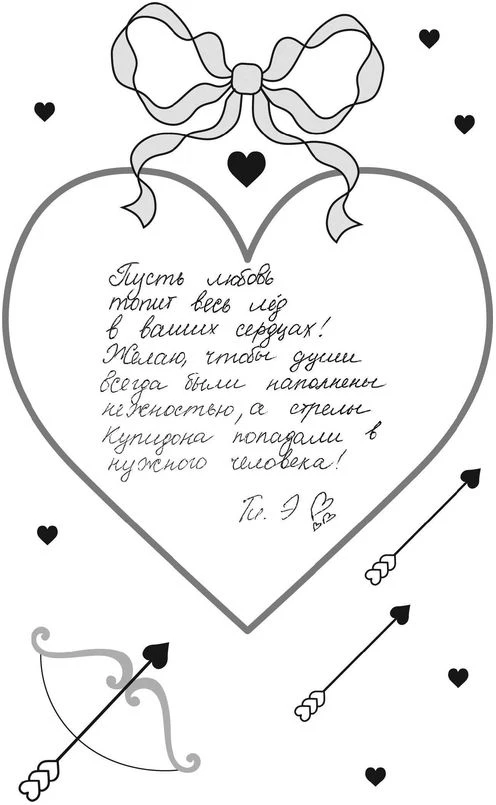 Пусть любовь
топит весь лёд
в ваших сердцах!
Желаю, чтобы души
всегда были наполнены
нежностью, а стрелы
Купидона попадали в
нужного человека!
Ти. Э